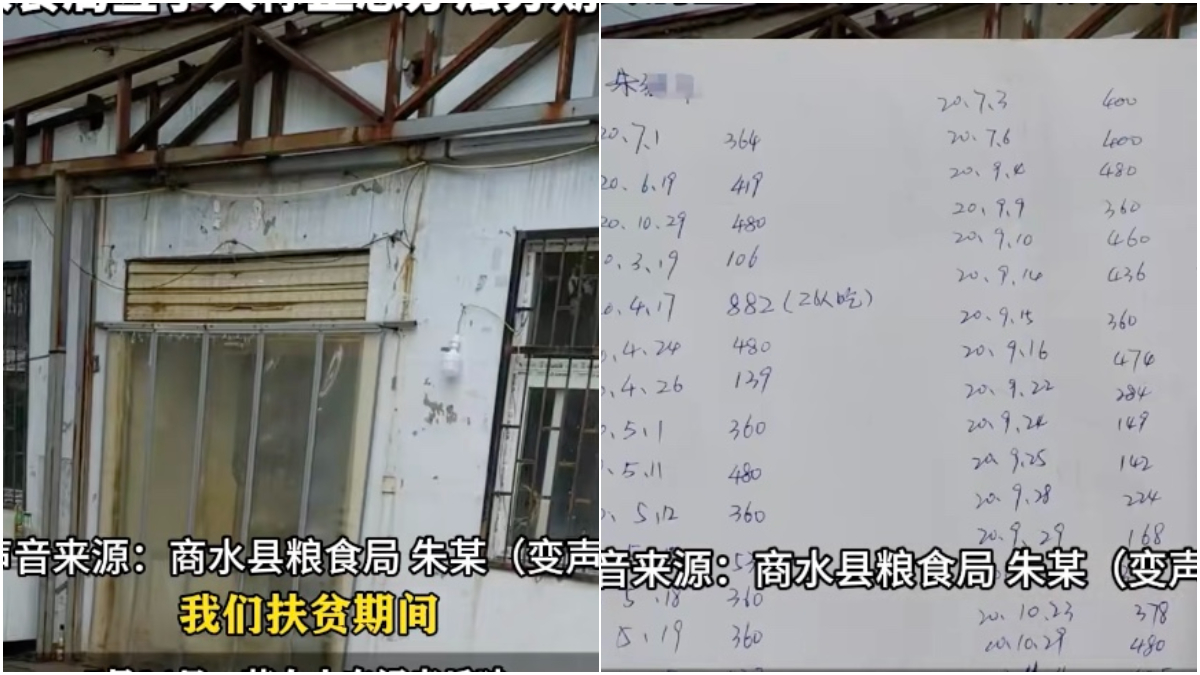 声音来源：商水县粮食局 朱某（变声
我们扶贫期间
朱
20.7.1 364
20.6.19 419
20.10.29 480
.3.19 106
.4.17 882(2队吃)
.4.24 480
.4.26 139
.5.1 360
.5.11 480
.5.12 360
5.18 360
5.19 360
20.7.3 400
20.7.6 400
20.9.4 480
20.9.9 360
20.9.10 460
20.9.14 436
20.9.15 360
20.9.16 474
20.9.22 284
20.9.24 149
20.9.25 142
20.9.28 224
20.9.29 168
音来源：商水县粮食局 朱某（变声
20.10.23 378
20.10.29 480